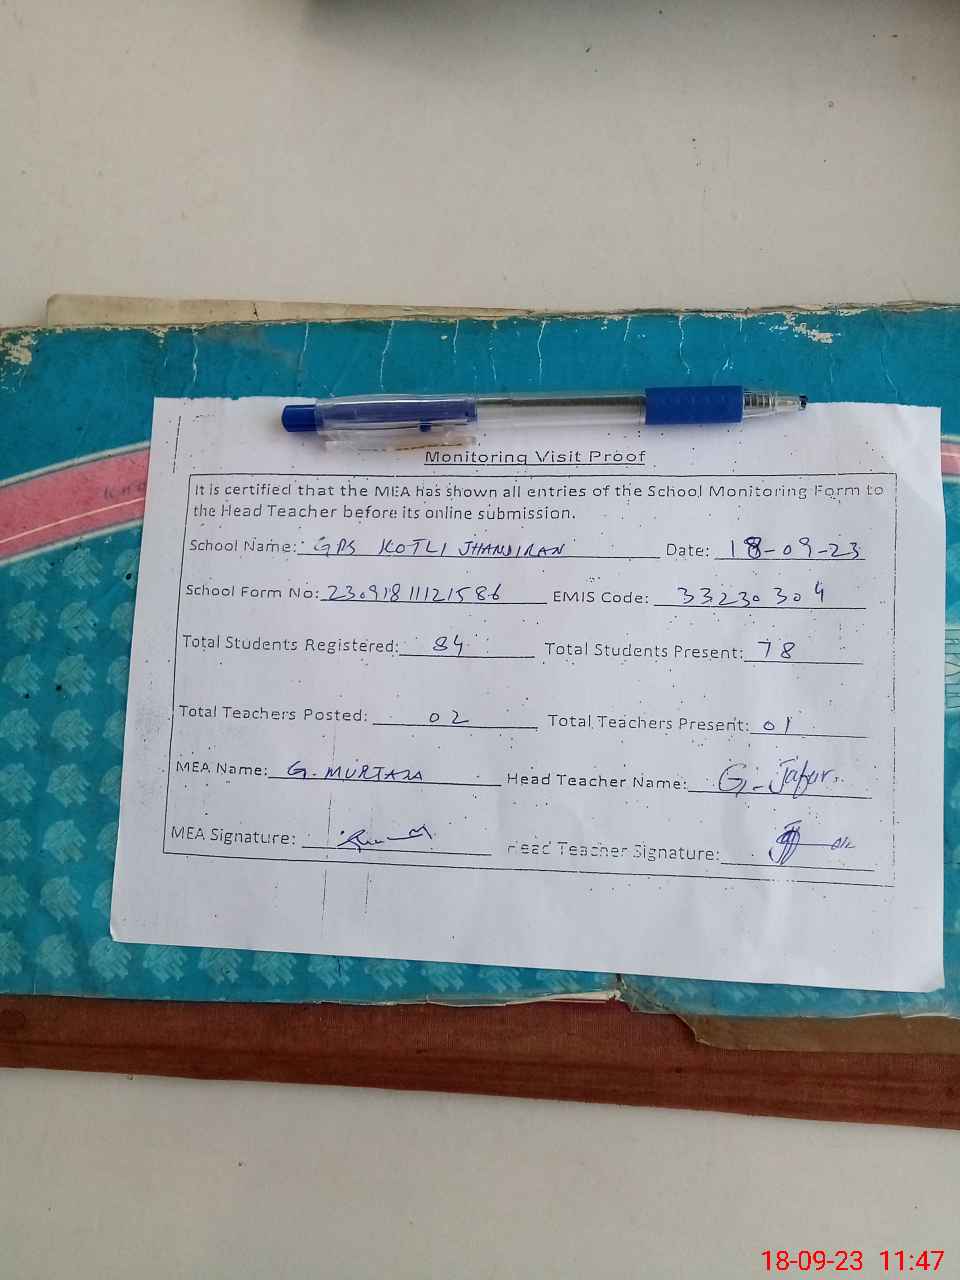 Monitoring Visit Proof
It is certified that the MEA has shown all entries of the School Monitoring Form to
the Head Teacher before its online submission.
School Name: GPS KOTLI JHANDIRAN Date: 18-09-23
School Form No: 23091811121586 EMIS Code: 33230304
Total Students Registered: 84 Total Students Present: 78
Total Teachers Posted: 02 Total Teachers Present: 01
MEA Name: G. MURTAZA Head Teacher Name: G. Jafar.
MEA Signature: Head Teacher Signature:
18-09-23 11:47